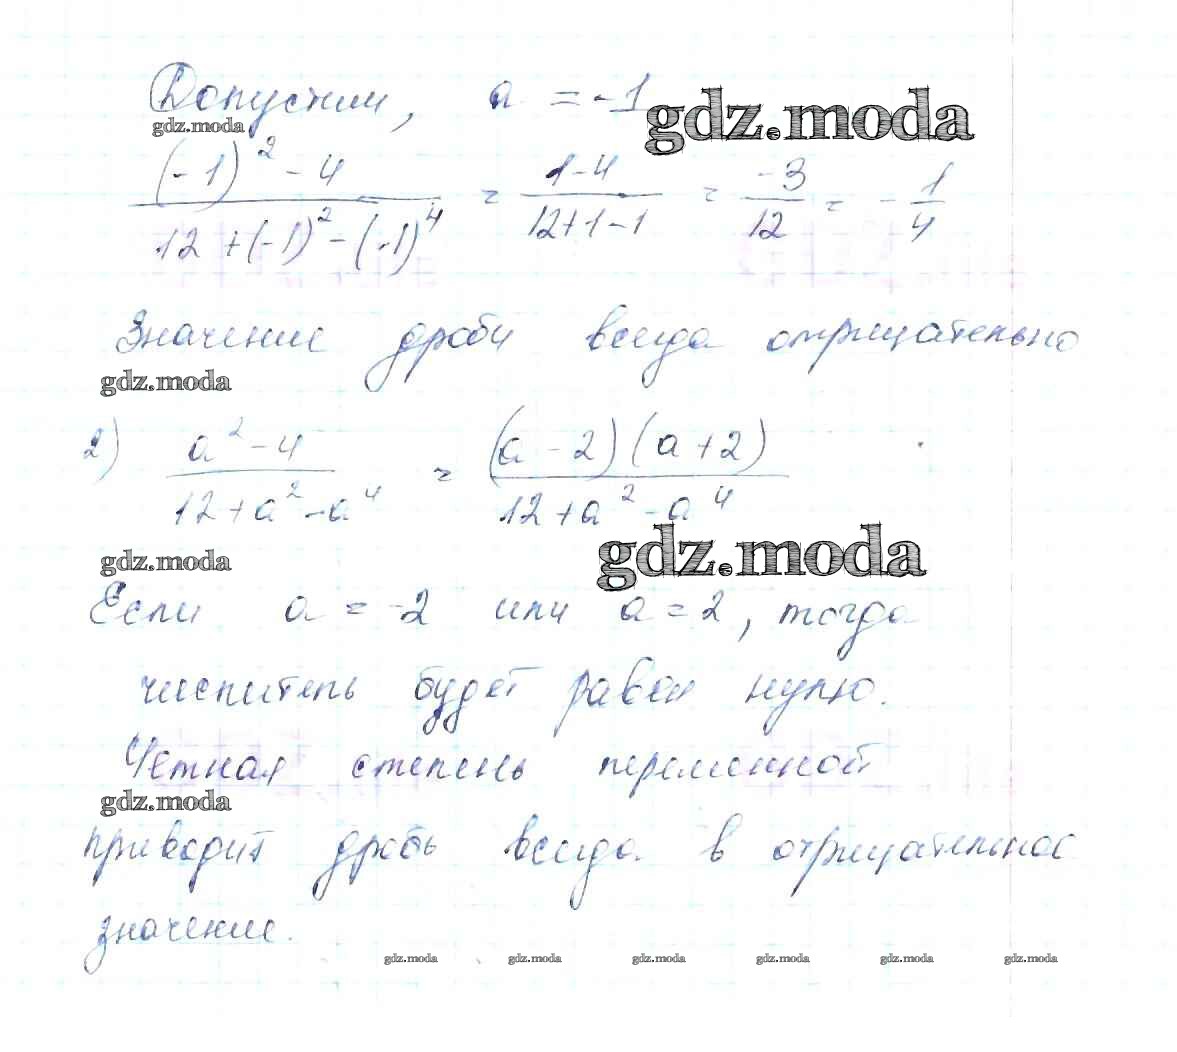 Допустим, a = -1
gdz.moda
gdz.moda
((-1)² - 4) / (12 + (-1)² - (-1)⁴) = (1-4) / (12+1-1) = -3/12 = - 1/4
Значение дроби всегда отрицательно
gdz.moda
2) (a² - 4) / (12 + a² - a⁴) = ((a - 2)(a + 2)) / (12 + a² - a⁴)
gdz.moda
gdz.moda
Если a = -2 или a = 2, тогда
числитель будет равен нулю.
Четная степень переменной
gdz.moda
приводит дробь всегда в отрицательное
значение.
gdz.moda gdz.moda gdz.moda gdz.moda gdz.moda gdz.moda